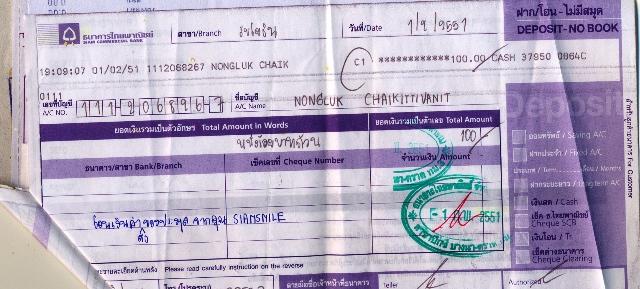 ธนาคารไทยพาณิชย์
SIAM COMMERCIAL BANK
สาขา/Branch
วันที่/Date 1/2/2551
ฝาก/โอน - ไม่มีสมุด
DEPOSIT - NO BOOK
19:09:07 01/02/51 1112068267 NONGLUK CHAIK
C1 ************100.00 CASH 37950 0864C
0111
เลขที่บัญชี
A/C NO. 111-206826-7
ชื่อบัญชี
A/C Name NONGLUK CHAIKITTIVANIT
ยอดเงินรวมเป็นตัวอักษร Total Amount in Words
ยอดเงินรวมเป็นตัวเลข Total Amount
หนึ่งร้อยบาทถ้วน
100-
ธนาคาร/สาขา Bank/Branch
เช็คเลขที่ Cheque Number
จำนวนเงิน Amount
SIAMSMILE
2551
Deposit
ออมทรัพย์ / Saving A/C
ฝากประจำ / Fixed A/C
ฝากระยะยาว / Long term A/C
เงินสด / Cash
เช็ค ธ.ไทยพาณิชย์
Cheque SCB
เงินโอน / Tr.
เช็คต่างธนาคาร
Cheque Clearing
สำหรับลูกค้าธนาคาร For Customer
Please read carefully instruction on the reverse
ลายมือชื่อเจ้าหน้าที่ธนาคาร
Teller
Authorized